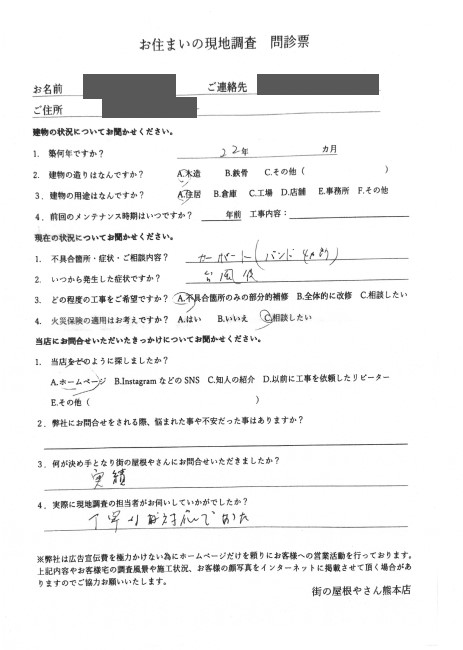 お住まいの現地調査 問診票
お名前 ご連絡先
ご住所
建物の状況についてお聞かせください。
1. 築何年ですか? 22年 カ月
2. 建物の造りはなんですか? A.木造 B.鉄骨 C.その他( )
3. 建物の用途はなんですか? A.住居 B.倉庫 C.工場 D.店舗 E.事務所 F.その他
4. 前回のメンテナンス時期はいつですか? 年前 工事内容:
現在の状況についてお聞かせください。
1. 不具合箇所・症状・ご相談内容? カーポート(バンド4か所)
2. いつから発生した症状ですか? 台風後
3. どの程度の工事をご希望ですか? A.不具合箇所のみの部分的補修 B.全体的に改修 C.相談したい
4. 火災保険の適用はお考えですか? A.はい B.いいえ C.相談したい
当店にお問合せいただいたきっかけについてお聞かせください。
1. 当店をどのように探しましたか?
A.ホームページ B.Instagram などの SNS C.知人の紹介 D.以前に工事を依頼したリピーター
E.その他( )
2. 弊社にお問合せをされる際、悩まれた事や不安だった事はありますか?
3. 何が決め手となり街の屋根やさんにお問合せいただきましたか?
実績
4. 実際に現地調査の担当者がお伺いしていかがでしたか?
丁寧な対応でした
※弊社は広告宣伝費を極力かけない為にホームページだけを頼りにお客様への営業活動を行っております。
上記内容やお客様宅の調査風景や施工状況、お客様の顔写真をインターネットに掲載させて頂く場合がありますのでご協力お願いいたします。
街の屋根やさん熊本店